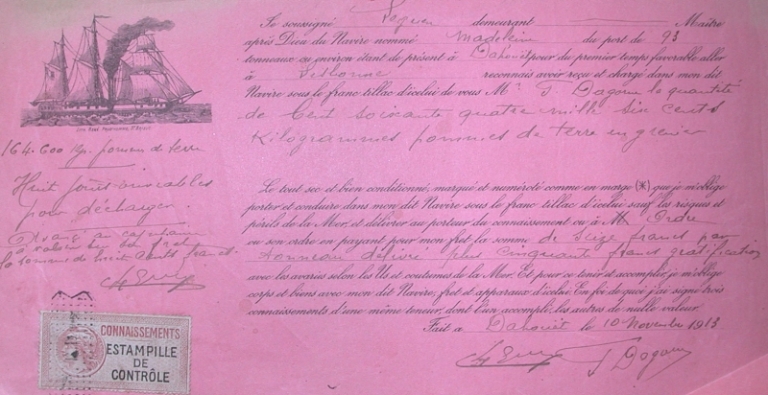 Je soussigné demeurant Maître
après Dieu du Navire nommé Madeleine du port de 93
tonneaux ou environ étant de présent à Dahouët pour du premier temps favorable aller
à Lisbonne reconnais avoir reçu et chargé dans mon dit
Navire sous le franc tillac d'icelui de vous M. la quantité
de Cent soixante quatre mille six cents
Kilogrammes pommes de terre en grenier
164.600 Kg. pommes de terre
Huit jours ouvrables
pour décharger.
Avancé au capitaine
à valoir sur son fret
la somme de huit cents francs
Le tout sec et bien conditionné, marqué et numéroté comme en marge (*) que je m'oblige
porter et conduire dans mon dit Navire sous le franc tillac d'icelui sauf les risques et
périls de la Mer, et délivrer au porteur du connaissement ou à M. Ordre
ou son ordre en payant pour mon fret la somme de Seize francs par
tonneau délivré plus cinquante francs gratification
avec les avaries selon les Us et coutumes de la Mer. Et pour ce tenir et accomplir, je m'oblige
corps et biens avec mon dit Navire, fret et apparaux d'icelui. En foi de quoi j'ai signé trois
connaissements d'une même teneur, dont l'un accompli, les autres de nulle valeur.
Fait à Dahouët le 10 Novembre 1913
CONNAISSEMENTS
ESTAMPILLE
DE
CONTRÔLE